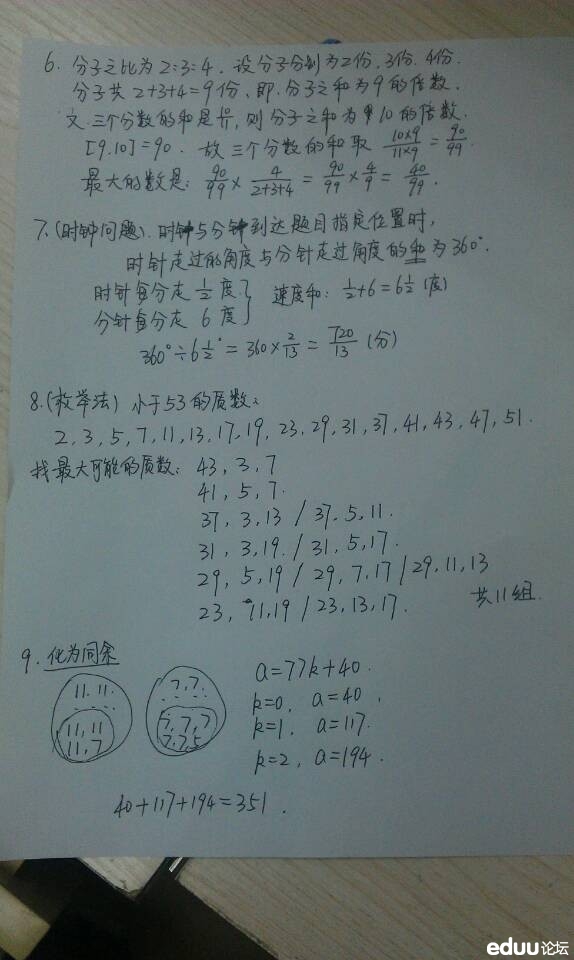 6. 分子之比为2:3:4. 设分子分别为2份,3份,4份.
分子共2+3+4=9份,即:分子之和为9的倍数.
又三个分数的和是10/11,则分子之和为10的倍数.
[9,10]=90. 故三个分数的和取 10×9/11×9 = 90/99.
最大的数是: 90/99 × 4/2+3+4 = 90/99 × 4/9 = 40/99.
7.(时钟问题).时针与分针到达题目指定位置时,
时针走过的角度与分针走过角度的和为360°.
时针每分走 1/2 度 } 速度和: 1/2+6=6 1/2 (度)
分针每分走 6 度
360°÷6 1/2° = 360× 2/13 = 720/13 (分)
8.(枚举法) 小于53的质数:
2,3,5,7,11,13,17,19,23,29,31,37,41,43,47,51.
找最大可能的质数: 43,3,7
41,5,7.
37,3,13 / 37,5,11.
31,3,19. / 31,5,17.
29,5,19 / 29,7,17 / 29,11,13
23,11,19 / 23,13,17. 共11组.
9. 化为同余
11.11. 7,7. a=77k+40.
11,11 7,7,7 k=0, a=40,
11,7 7,7,5 k=1, a=117.
k=2, a=194.
40+117+194=351.
eduu论坛